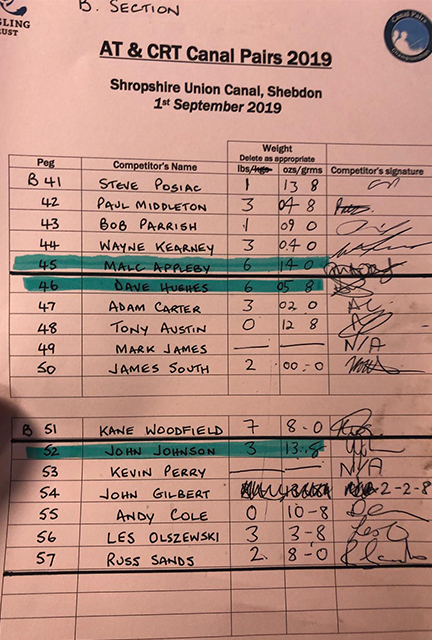 B. SECTION
GLING
UST
Canal Pairs
AT & CRT Canal Pairs 2019
Shropshire Union Canal, Shebdon
1st September 2019
Weight
Delete as appropriate
Peg Competitor's Name lbs/kgs ozs/grms Competitor's signature
B 41 STEVE POSIAC 1 13 8
42 PAUL MIDDLETON 3 04 8
43 BOB PARRISH 1 09 0
44 WAYNE KEARNEY 3 04 0
45 MALC APPLEBY 6 14 0
46 DAVE HUGHES 6 05 8
47 ADAM CARTER 3 02 0 AC
48 TONY AUSTIN 0 12 8
49 MARK JAMES — — N/A
50 JAMES SOUTH 2 00 - 0
B 51 KANE WOODFIELD 7 8 - 0
52 JOHN JOHNSON 3 13 - 8
53 KEVIN PERRY — — N/A
54 JOHN GILBERT 2-2-8
55 ANDY COLE 0 10 - 8
56 LES OLSZEWSKI 3 3 - 8 Les O
57 RUSS SANDS 2. 8 - 0